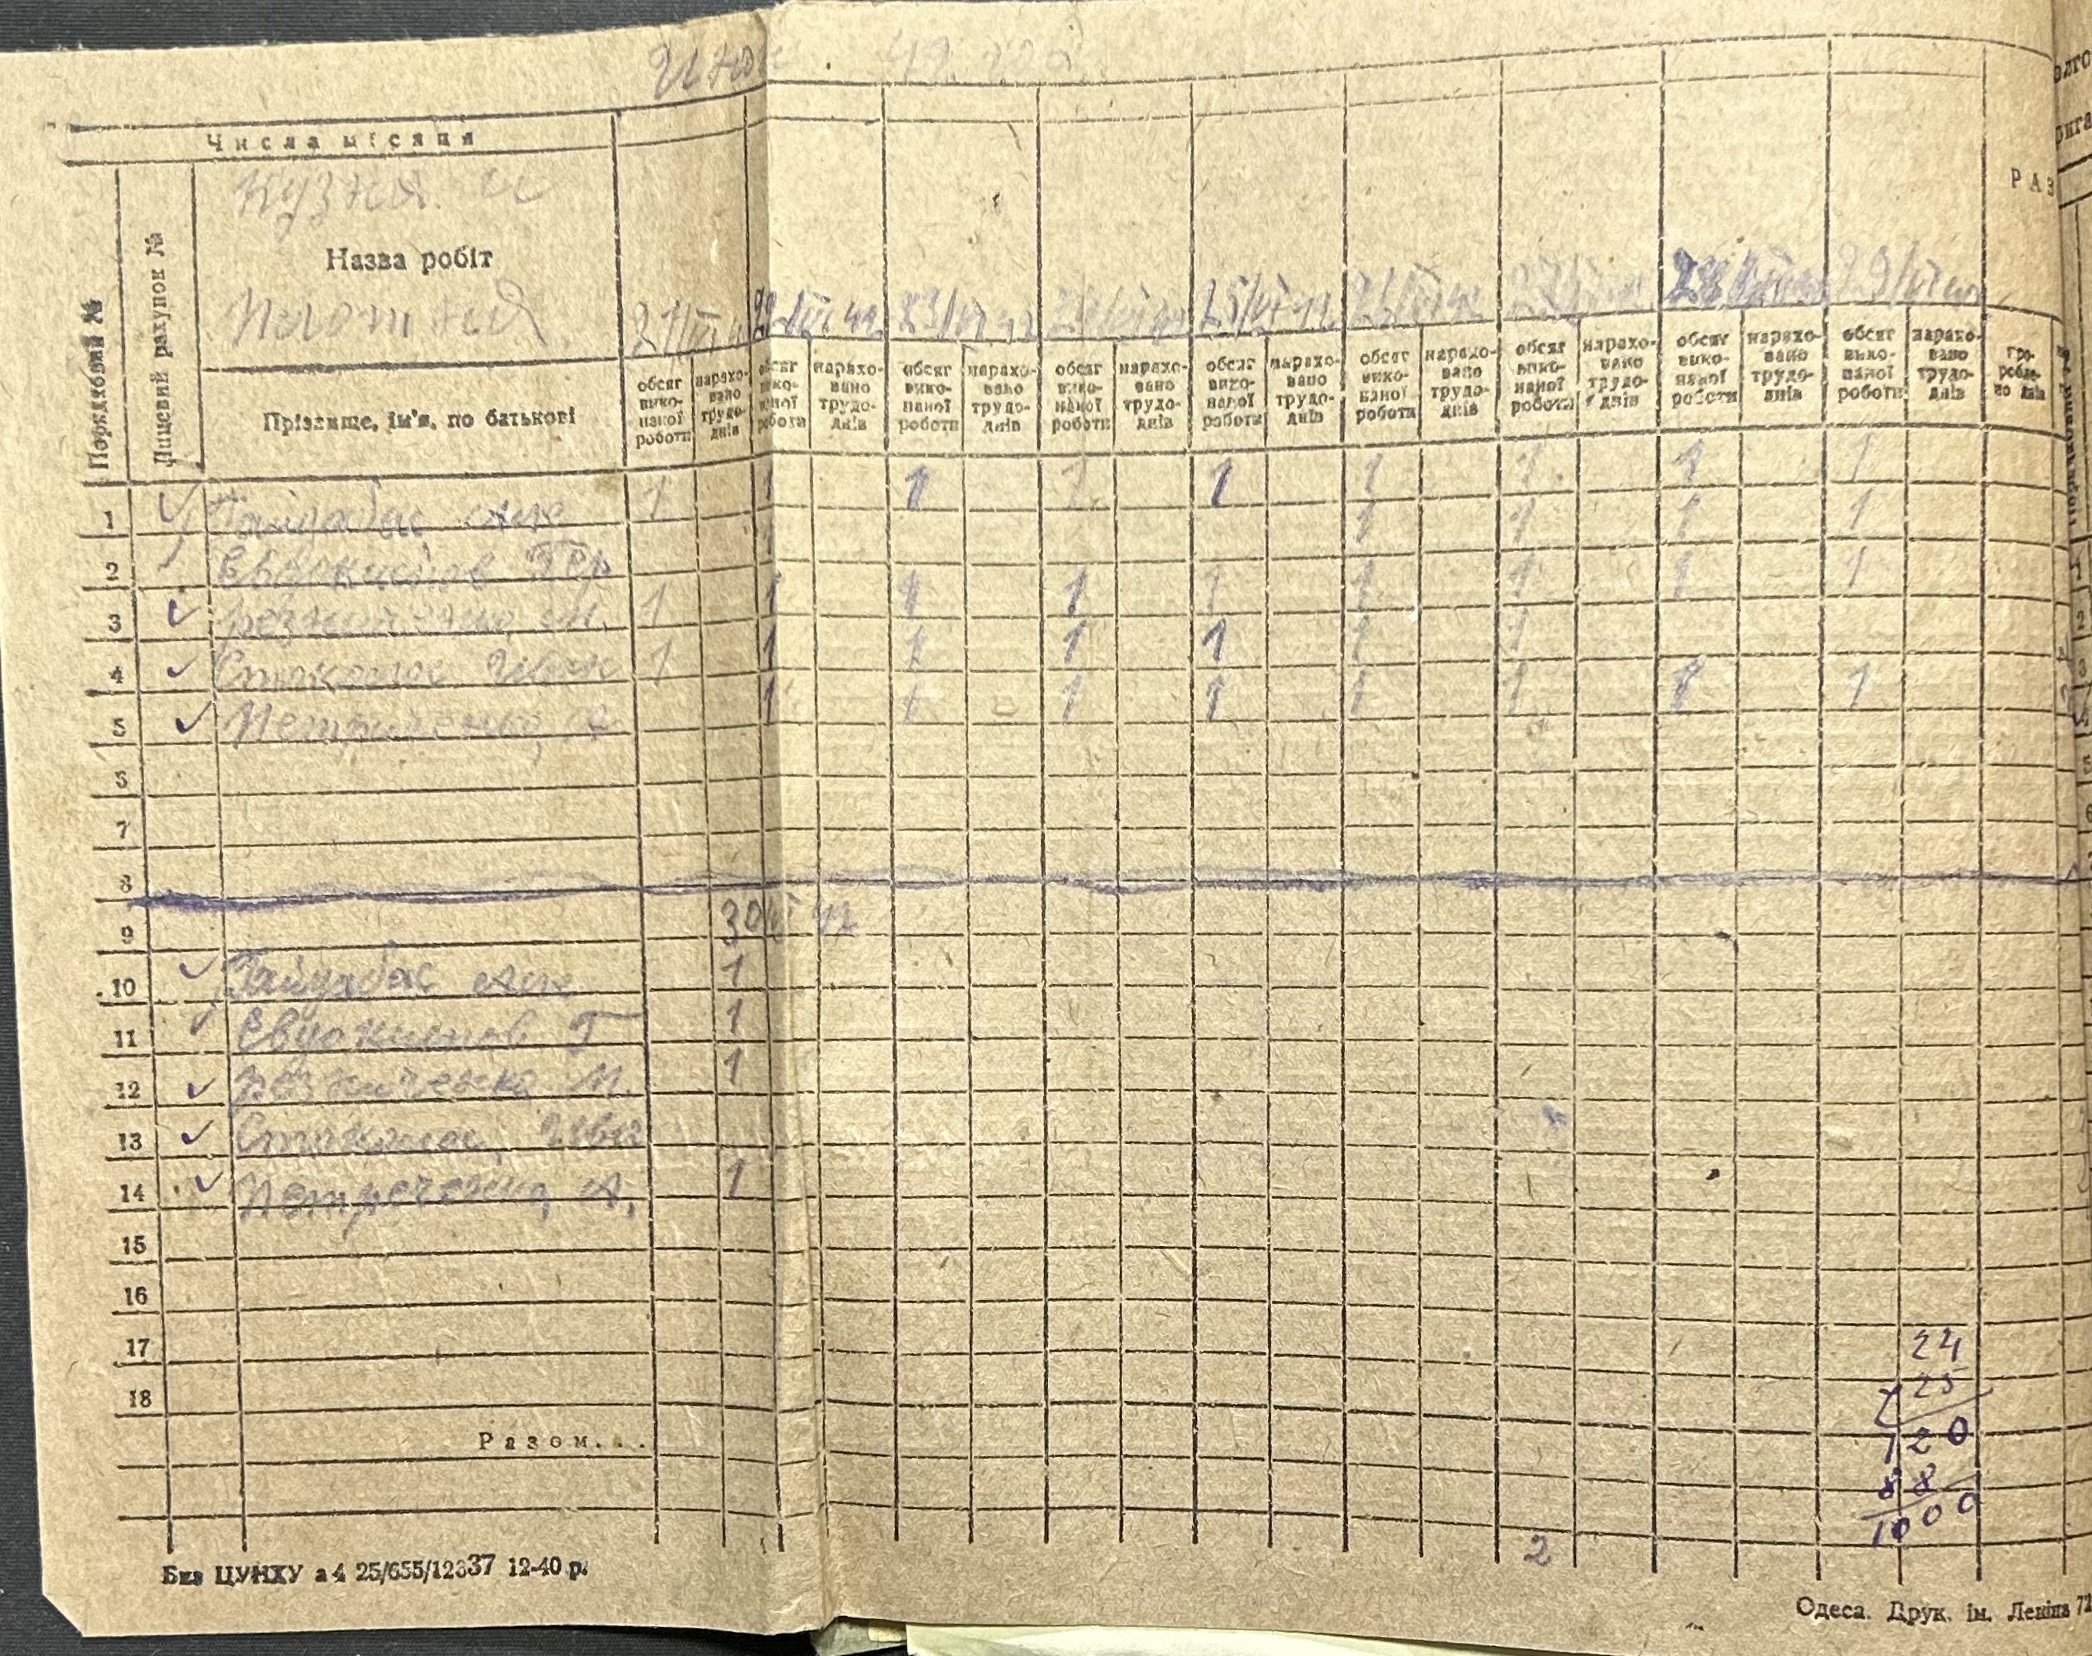 Июн 42
Числа місяця
Кузня. и
Назва робіт
Плотния
Прізвище, ім'я, по батькові
Порядковий №
Лицевий рахунок №
21/VI 22/VI 42 23/VI 42 24/VI 42 25/VI 42 26/VI 42 27/VI 28/VI 29/VI 42
РАЗ
обсяг виконаної роботи нараховано трудоднів обсяг виконаної роботи нараховано трудоднів обсяг виконаної роботи нараховано трудоднів обсяг виконаної роботи нараховано трудоднів обсяг виконаної роботи нараховано трудоднів обсяг виконаної роботи нараховано трудоднів обсяг виконаної роботи нараховано трудоднів обсяг виконаної роботи нараховано трудоднів обсяг виконаної роботи нараховано трудоднів
1 Гайдабас Але 1 1 1 1 1 1 1 1 1
2 Евдокимов Гер 1 1 1 1 1
3 Резниченко М. 1 1 1 1 1 1 1 1 1
4 Стаколос Иван 1 1 1 1 1 1 1
5 Петриченко, А 1 1 1 1 1 1 1 1
6
7
8
9 30/VI 42
10 Гайдабас Але 1
11 Евдокимов Г 1
12 Резниченко М. 1
13 Стаколос, Ива
14 Петреченко, А, 1
15
16
17 24
18 25
120
Разом...
88
1000
2
Бкв ЦУНХУ а4 25/655/12337 12-40 р.
Одеса. Друк. ім. Леніна 72